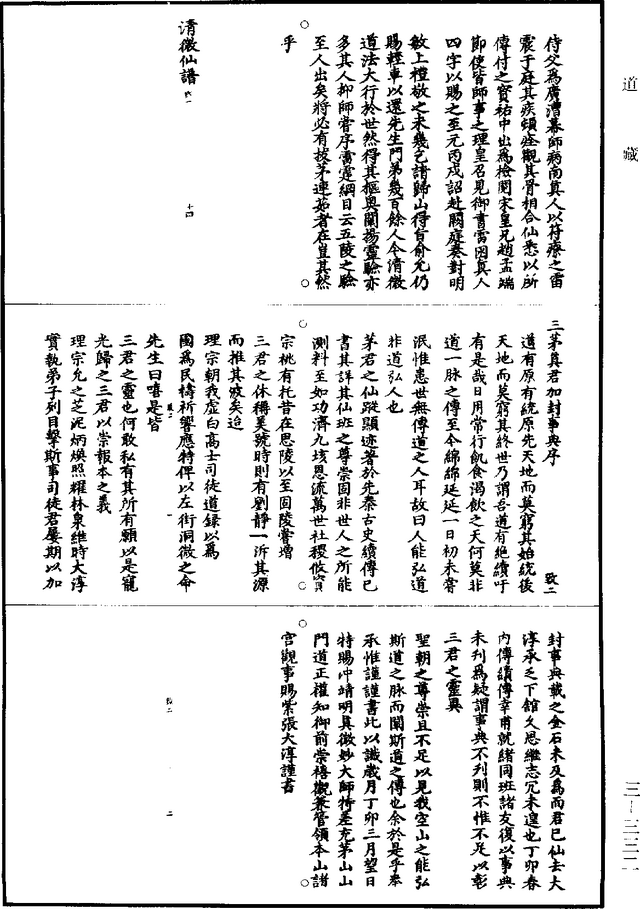 道藏
侍父爲廣漕幕師病南真人以符療之雷
震于庭其疾頓痊觀其骨相合仙悉以所
傳付之寶祐中出爲檢閱宋皇兄趙孟端
節使皆師事之理皇召見御書雷囦真人
四字以賜之至元丙戌詔赴闕庭奏對明
敏上禮敬之未幾乞請歸山得旨俞允仍
賜輕車以還先生門弟幾百餘人今清微
道法大行於世然得其樞奥闡揚靈驗亦
多其人抑師嘗序雷霆綱目云五陵之驗
至人出矣將必有拔茅連茹者在豈其然
乎
清微仙譜
十四
三茅真君加封事典序
致二
道有原有統原先天地而莫窮其始統後
天地而莫窮其終世乃謂吾道有絶續吁
有是哉日用常行飢食渴飲之天何莫非
道一脉之傳至今綿綿延延一日初未嘗
泯惟患世無傳道之人耳故曰人能弘道
非道弘人也
茅君之仙蹤顯迹著於先秦古史續傳已
書其詳其仙班之尊崇固非世人之所能
測料至如功濟九垓恩流萬世社稷攸賓
宗祧有托昔在思陵以至固陵嘗增
三君之休稱美號時則有劉靜一泝其源
而推其波矣迨
理宗朝我虚白高士司徒道録以爲
國爲民禱祈響應特俾以左街洞微之命
先生曰嘻是皆
三君之靈也何敢私有其所有願以是寵
光歸之三君以崇報本之義
理宗允之芝泥炳煥照耀林泉維時大淳
實執弟子列目擊斯事司徒君屢期以加
封事典載之金石未及爲而君已仙去大
淳承乏下館久思繼志冗未遑也丁卯春
内傳續傳幸甫就緒同班諸友復以事典
未刊爲疑謂事典不刋則不惟不足以彰
三君之靈異
聖朝之尊崇且不足以見我空山之能弘
斯道之脉而闡斯道之傳也余於是乎奉
承惟謹謹書此以識歲月丁卯三月望日
特賜冲靖明真微妙大師特差充茅山山
門道正權知御前崇禧觀兼管領本山諸
宫觀事賜紫張大淳謹書
二
三-三二二